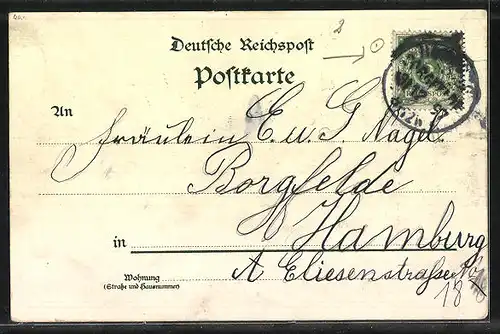 2
Deutsche Reichspost
Postkarte
An
Fräulein E. u. G. Nagel
Borgfelde
in Hamburg
A Eliesenstraße No
Wohnung
(Straße und Hausnummer)
18